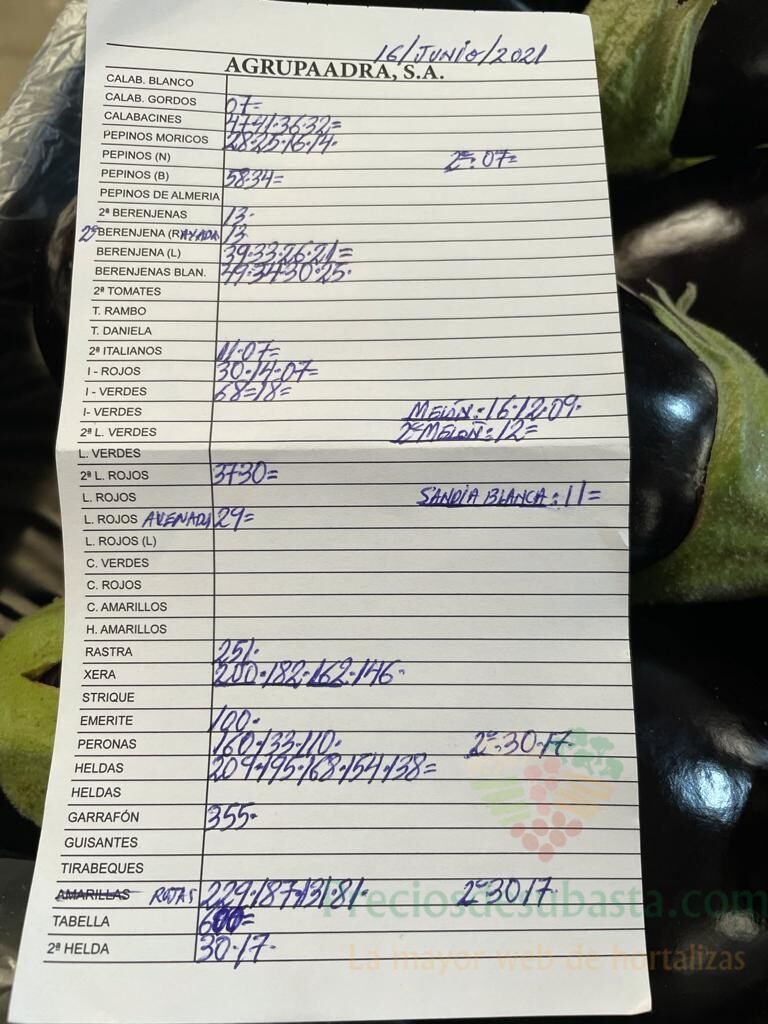 16/JUNIO/2021
AGRUPAADRA, S.A.
CALAB. BLANCO
CALAB. GORDOS 07=
CALABACINES 47·41·36·32=
PEPINOS MORICOS 28·25·16·14·
PEPINOS (N) 2ª: 07=
PEPINOS (B) 58·34=
PEPINOS DE ALMERIA
2ª BERENJENAS 13·
2ª BERENJENA (R)AYADA 13
BERENJENA (L) 39·33·26·21=
BERENJENAS BLAN. 49·34·30·25·
2ª TOMATES
T. RAMBO
T. DANIELA
2ª ITALIANOS 11·07=
I - ROJOS 30·14·07=
I - VERDES 68=18=
I- VERDES MELÓN: 16·12·09·
2ª L. VERDES 2ª MELON: 12=
L. VERDES
2ª L. ROJOS 37·30=
L. ROJOS SANDIA BLANCA: 11=
L. ROJOS AVENADA 29=
L. ROJOS (L)
C. VERDES
C. ROJOS
C. AMARILLOS
H. AMARILLOS
RASTRA 251·
XERA 200·182·162·146·
STRIQUE
EMERITE 100·
PERONAS 160·133·110· 2ª: 30·17·
HELDAS 209·195·168·154·138=
HELDAS
GARRAFÓN 355·
GUISANTES
TIRABEQUES
AMARILLAS ROJAS 229·187·131·81· 2ª 30·17·
TABELLA 600=
2ª HELDA 30·17·
Preciosdesubasta.com
La mayor web de hortalizas